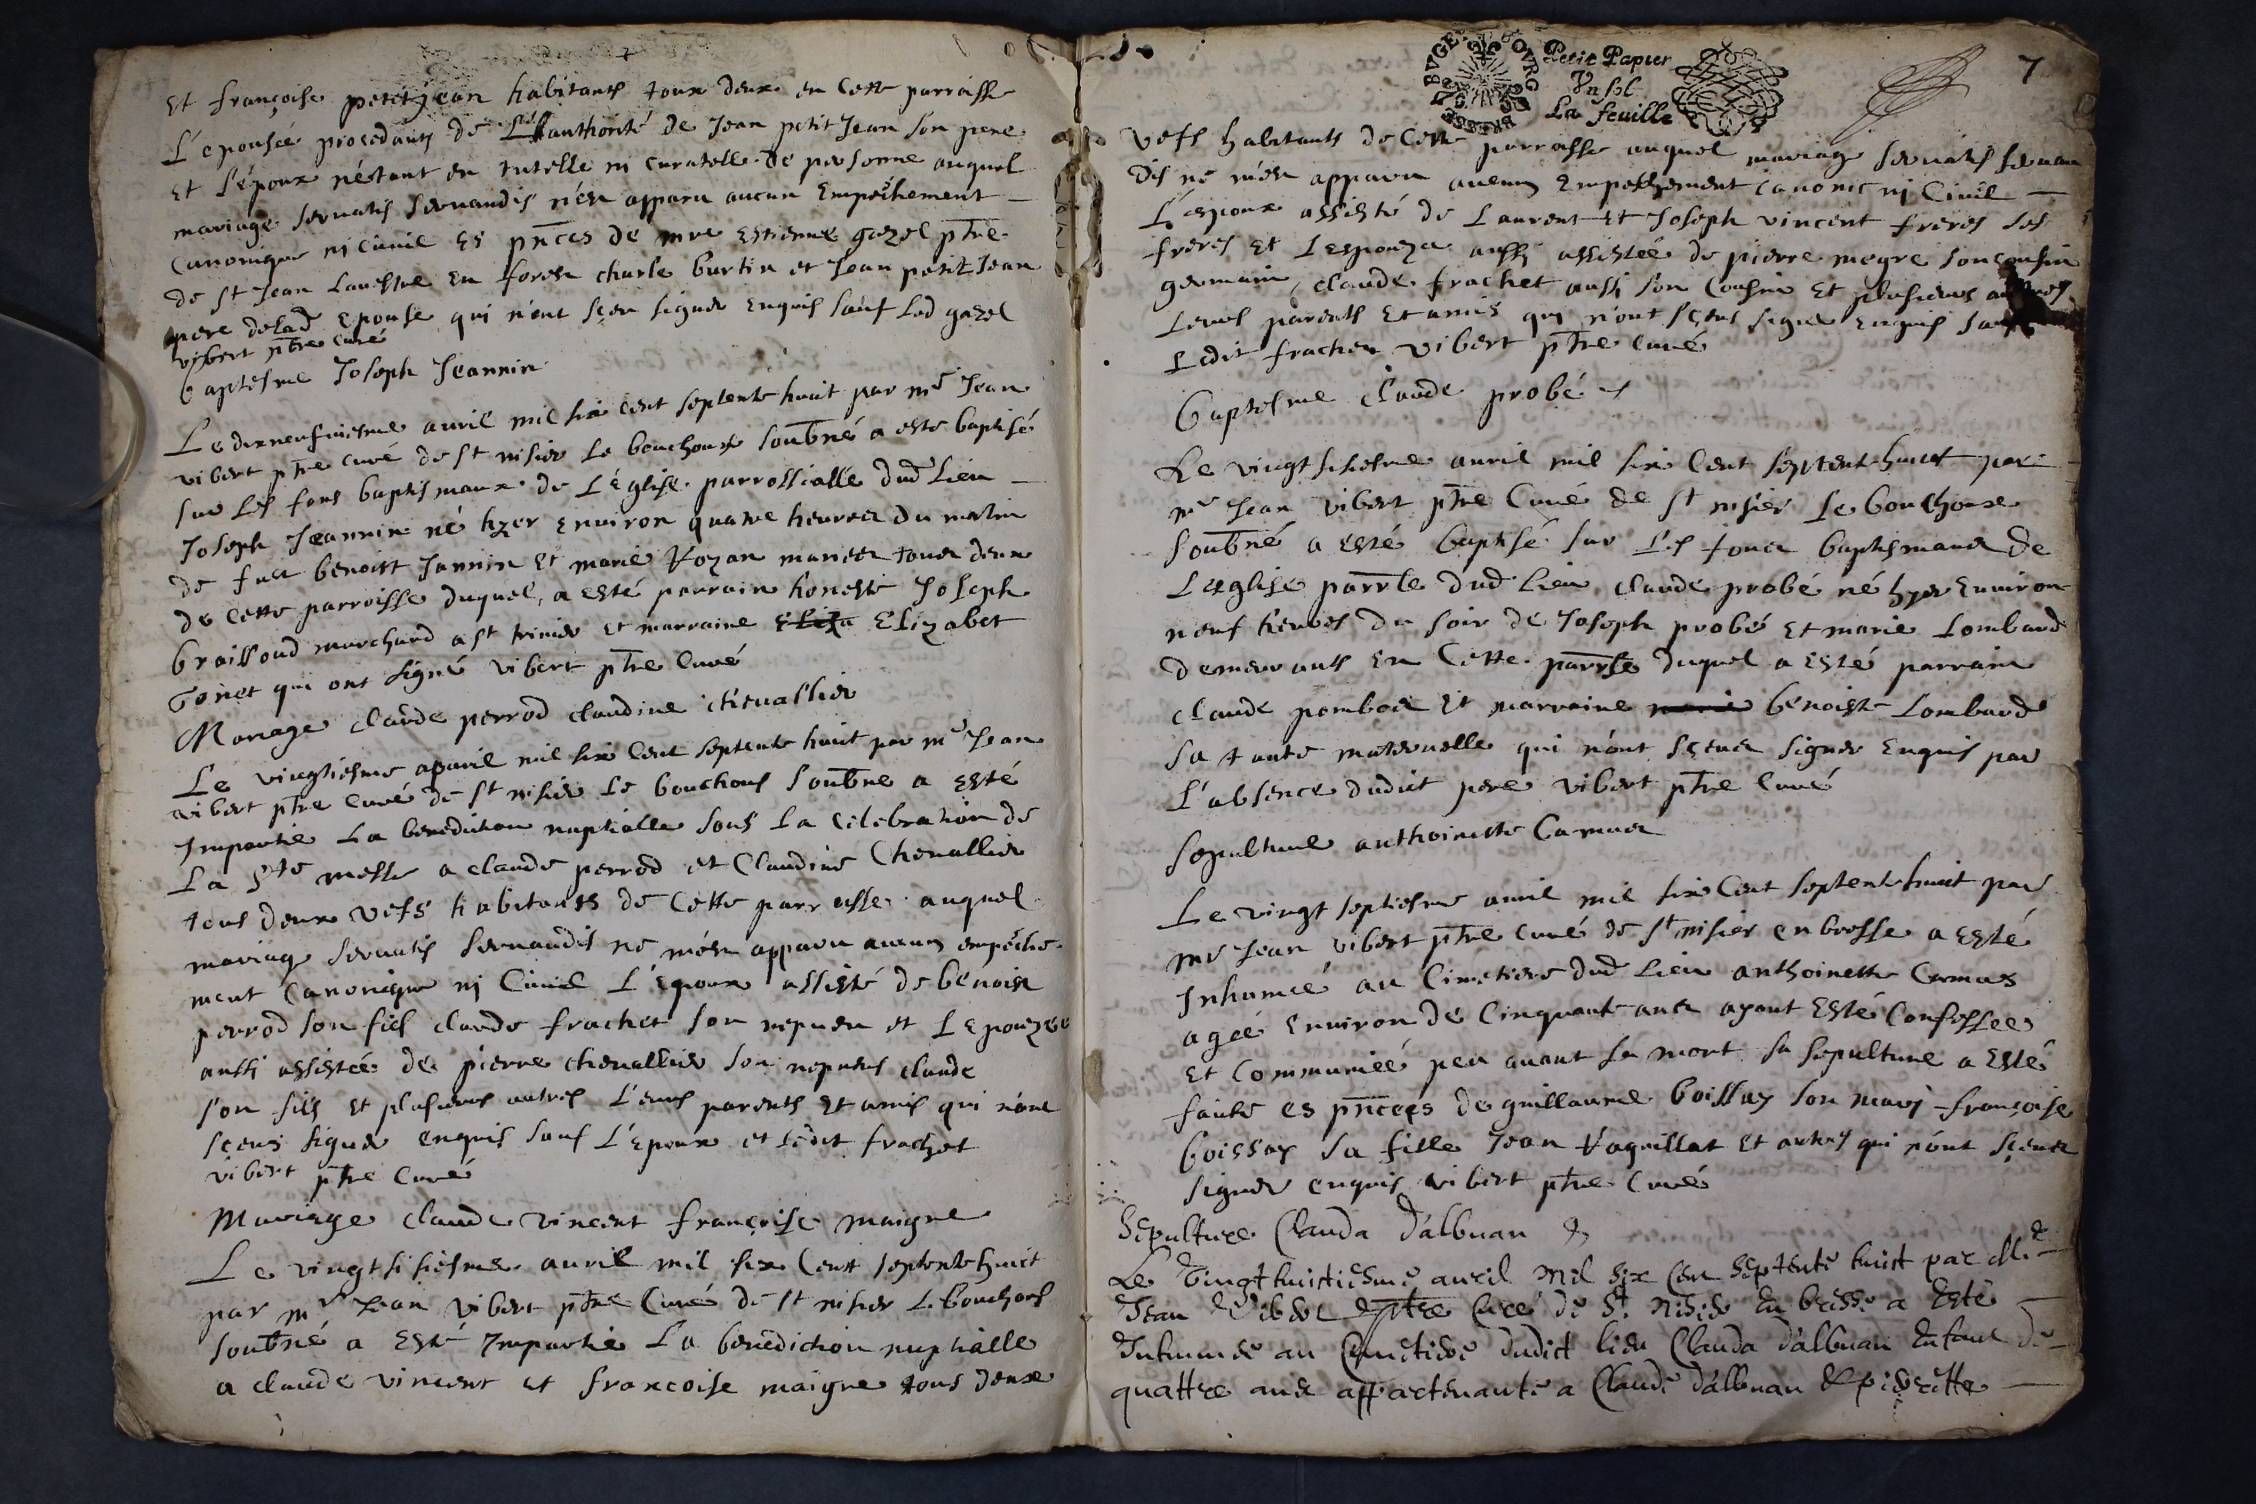 Et françoise petitjean habitants toux deux en cette parroisse
L'epousée procedants de L'authorité de Jean petit Jean son pere
Et l'époux n'éstant en tutelle ni curatelle de personne auquel
mariage servatis servandis n'en apparu aucun Empeschement
Canonique ni Civil Es pñces de mre Estienne gazel ptre
de st Jean Lavestre En forest charle burtin et Jean petit Jean
pere delad Epouse qui n'ont sçeu signer Enquis sauf Led gazel
vibert ptre curé
baptesme Joseph Jeannin
Le dixneufviesme avril mil six cent septente huit par mre Jean
vibert ptre curé de st nisier Le bouchoux soubné a esté baptisé
sur Les fons baptismaux de L'Eglise parrossialle dud Lieu
Joseph Jeannin né hyer Environ quatre heures du matin
de benoist Jannin Et marie mariez tous deux
de Cette parroisse duquel a esté parrain honeste Joseph
braissoud marchand a st trivier et marraine Eliza Elizabet
Gonet qui ont signé vibert ptre curé
Mariage claude perrod claudine chevallier
Le vingtiesme apvril mil six Cent septente huit par mre Jean
vibert ptre curé de st nisier Le bouchoux soubne a Esté
Impartie La benediction nuptialle sous La Celebration de
La ste messe a claude perrod et Claudine Chevallier
tous deux vefs habitants de Cette parroisse auquel
mariage servatis servandis ne m'en apparu aucun empesche
ment Canonique nj Civil L'Epoux assisté de benoist
perrod son fils claude frachet son nepveu et L'Epouzée
aussi assistée de pierre chevallier son nepveus claude
son fils Et plusieurs autres Leurs parents Et amis qui n'ont
sçeus signer enquis sauf L'Epoux et Ledit frachet
vibert ptre Curé
Mariage claude vincent françoise maigre
Le vingt sisiesme avril mil six Cent septente huict
par mre Jean vibert ptre Curé de st nisier Le bouchoux
soubné a Esté Impartie La benediction nuptialle
a claude vincent et françoise maigre tous deux
BRESSE BVGEY BOVRG
Petit Papier
Vn sol
La feuille
7
vefs habitants de Cette parroisse auquel mariage servatis servan
dis ne m'en apparu aucun Empeschement Canonic nj Civil
L'espoux assisté de Laurent Et Joseph vincent freres ses
freres Et L'espouze aussi assistée de pierre megre son cousin
germain, claude frachet aussi son Cousin Et plusieurs autres
Leurs parents Et amis qui n'ont sçeus signer Enquis sauf
Ledit frachet vibert ptre Curé
baptesme claude probé
Le vingt sisiesme avril mil six Cent septente huict par
mre Jean vibert ptre Curé de st nisier Le bouchoux
soubné a Esté baptisé sur Les fons baptismaux de
L'Eglise parrle dud Lieu claude probé né hyer Environ
neuf heures du soir de Joseph probé Et marie Lombard
demeurants En Cette parrsse duquel a Esté parrain
claude et marraine benoiste Lombard
sa tante maternelle qui n'ont sçeus signer Enquis par
L'absence dudict pere vibert ptre Curé
sepulture anthoinette Camus
Le vingt septiesme avril mil six Cent septente huict par
mre Jean vibert ptre curé de st nisier en bresse a Esté
Inhumée au Cimetiere dud Lieu anthoinette Camus
agée Environ de Cinquante ans ayant Esté Confessee
Et Communiée peu avant sa mort sa sepulture a Esté
faite es pñcees de guillaume boissay son mary françoise
boissay sa fille Jean vaquillat Et autres qui n'ont sçeus
signer enquis vibert ptre Curé
Sepulture Clauda d'albuan
Le vingt huictiesme avril mil six Cent septente huict par Mre
Jean vibert ptre Curé de St Nisier En bresse a Esté
Inhumée au Cimetiere dudict lieu Clauda d'albuan Enfant de
quattre ans appartenante a Claude d'albuan Et pierrette